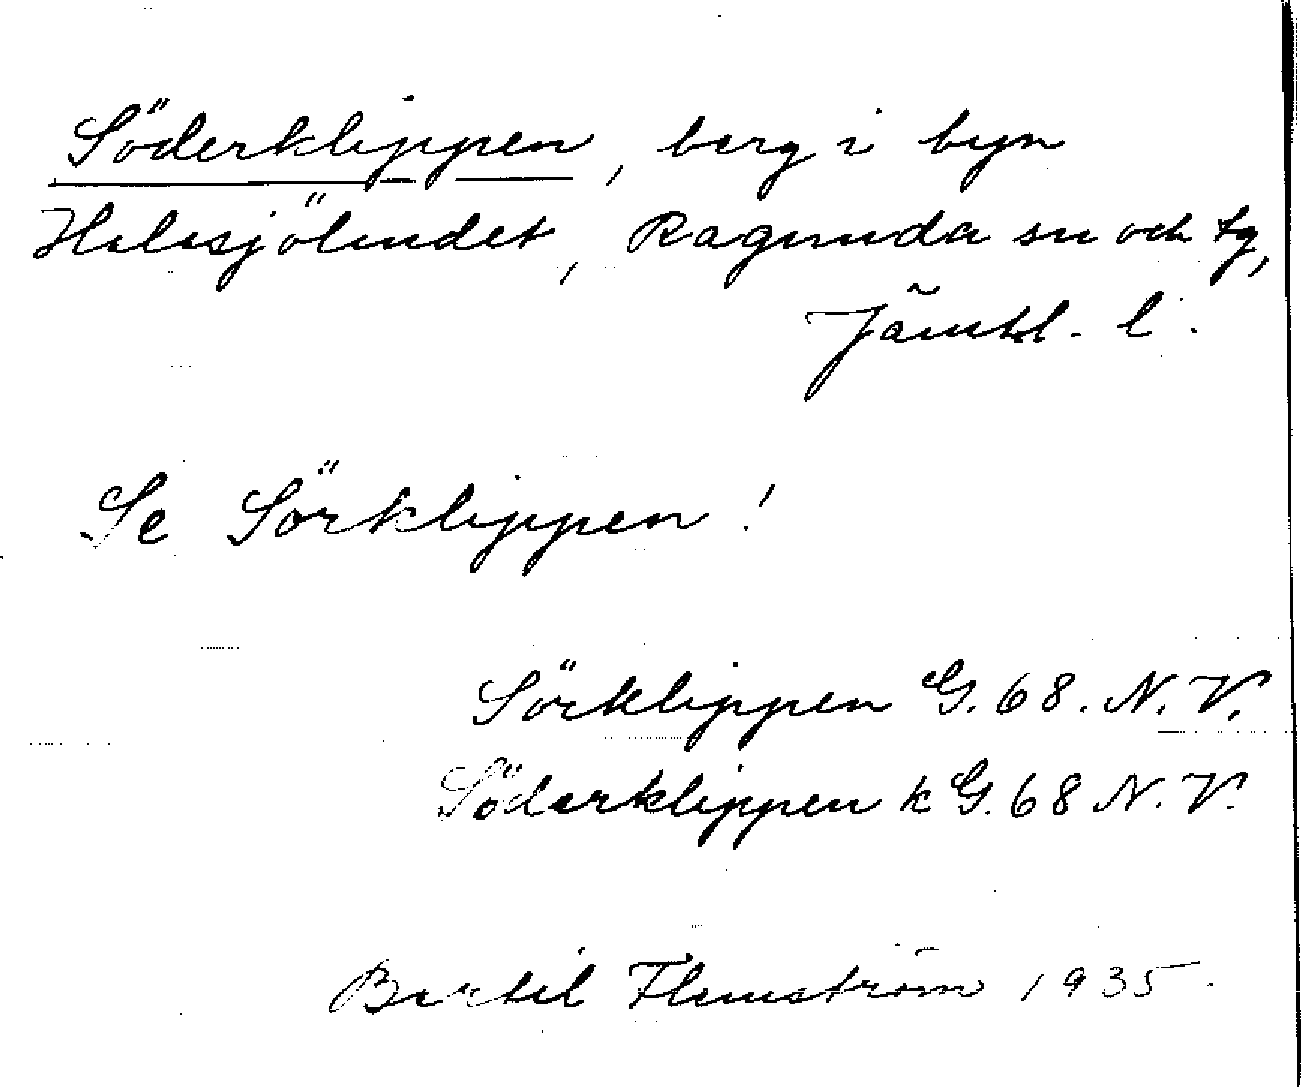 Söderklippen, berg i byn
Halasjölandet, Ragunda sn och tg,
Jämtl. l.
Se Sörklippen!
Sörklippen G. 68. N. V.
Söderklippen k G. 68 N. V.
Bertil Flemström 1935.